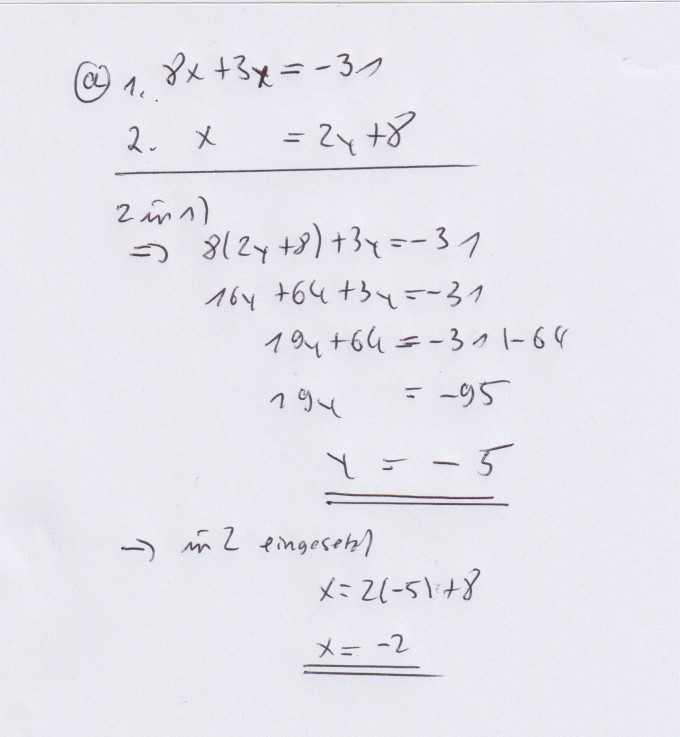 ⓐ 1. 8x+3x = -31
2. x = 2y+8
2 in 1)
=> 8(2y+8)+3y = -31
16y+64+3y = -31
19y+64 = -31 |-64
19y = -95
y = -5
→ in 2 eingesetzt
x = 2(-5)+8
x = -2